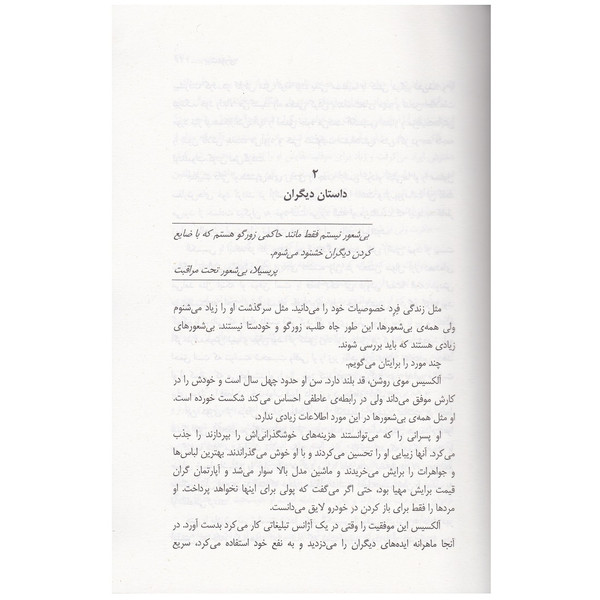 ۲
داستان دیگران
بی‌شعور نیستم فقط مانند حاکمی زورگو هستم که با ضایع
کردن دیگران خشنود می‌شوم.
پریسیلا، بی‌شعور تحت مراقبت
مثل زندگی فِرِد خصوصیات خود را می‌دانید. مثل سرگذشت او را زیاد می‌شنوم
ولی همه‌ی بی‌شعورها، این طور جاه طلب، زورگو و خودستا نیستند. بی‌شعورهای
زیادی هستند که باید بررسی شوند.
چند مورد را برایتان می‌گویم.
آلکسیس موی روشن، قد بلند دارد. سن او حدود چهل سال است و خودش را در
کارش موفق می‌داند ولی در رابطه‌ی عاطفی احساس می‌کند شکست خورده است.
او مثل همه‌ی بی‌شعورها در این مورد اطلاعات زیادی ندارد.
او پسرانی را که می‌توانستند هزینه‌های خوشگذرانی‌اش را بپردازند را جذب
می‌کرد. آنها زیبایی او را تحسین می‌کردند و با او خوش می‌گذراندند. بهترین لباس‌ها
و جواهرات را برایش می‌خریدند و ماشین مدل بالا سوار می‌شد و آپارتمان گران
قیمت برایش مهیا بود، حتی اگر می‌گفت که پولی برای اینها نخواهد پرداخت. او
مردها را فقط برای باز کردن در خودرو لایق می‌دانست.
آلکسیس این موفقیت را وقتی در یک آژانس تبلیغاتی کار می‌کرد بدست آورد. در
آنجا ماهرانه ایده‌های دیگران را می‌دزدید و به نفع خود استفاده می‌کرد، سریع